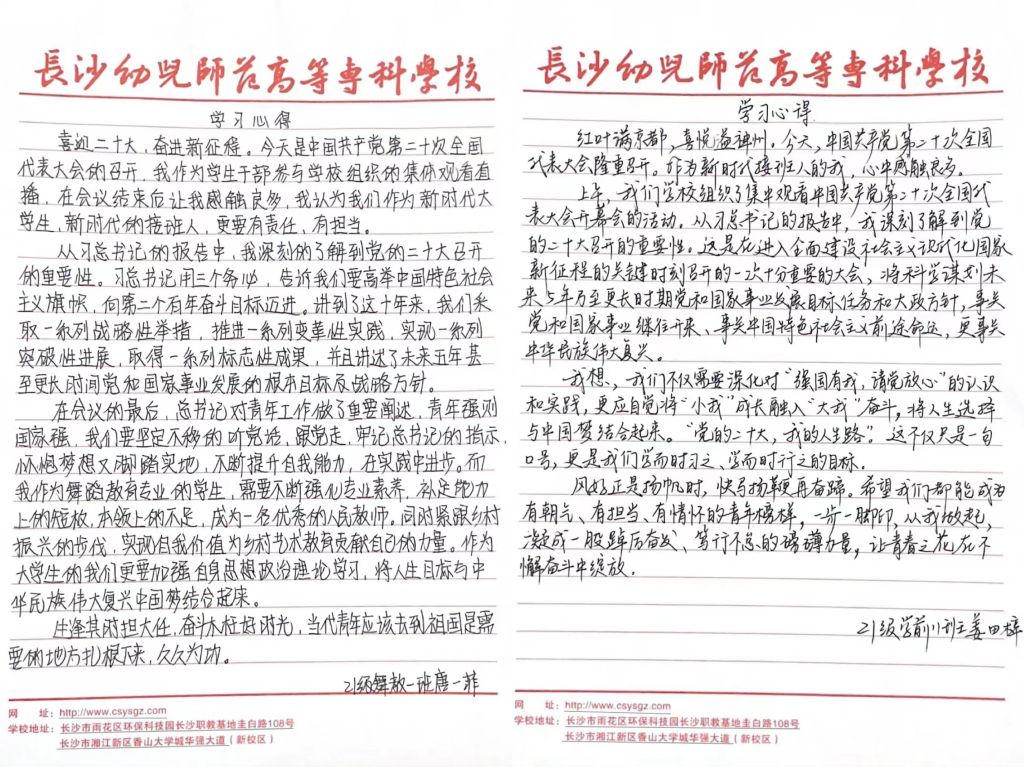 長沙幼兒師范高等專科學校
学习心得
喜迎二十大，奋进新征程。今天是中国共产党第二十次全国
代表大会的召开，我作为学生干部参与学校组织的集体观看直
播，在会议结束后让我感触良多，我认为我们作为新时代大
学生，新时代的接班人，更要有责任，有担当。
从习总书记的报告中，我深刻的了解到党的二十大召开
的重要性。习总书记用三个务必，告诉我们要高举中国特色社会
主义旗帜，向第二个百年奋斗目标迈进。讲到了这十年来，我们采
取一系列战略性举措，推进一系列变革性实践，实现一系列
突破性进展，取得一系列标志性成果，并且讲述了未来五年甚
至更长时间党和国家事业发展的根本目标及战略方针。
在会议的最后，总书记对青年工作做了重要阐述，青年强则
国家强，我们要坚定不移的听党话，跟党走，牢记总书记的指示，
怀抱梦想又脚踏实地，不断提升自我能力，在实践中进步。而
我作为舞蹈教育专业的学生，需要不断强化专业素养，补足能力
上的短板，本领上的不足，成为一名优秀的人民教师。同时紧跟乡村
振兴的步伐，实现自我价值为乡村艺术教育贡献自己的力量。作为
大学生的我们更要加强自身思想政治理论学习，将人生目标与中
华民族伟大复兴中国梦结合起来。
生逢其时担大任，奋斗不枉好时光，当代青年应该去到祖国是需
要的地方扎根下来，久久为功。
21级舞教一班唐一菲
网　址：http://www.csysgz.com
学校地址：长沙市雨花区环保科技园长沙职教基地圭白路108号
长沙市湘江新区香山大学城华强大道（新校区）
長沙幼兒師范高等專科學校
学习心得
红叶满京都，喜悦溢神州。今天，中国共产党第二十次全国
代表大会隆重召开。作为新时代接班人的我，心中感触很多。
上午，我们学校组织了集中观看中国共产党第二十次全国代
表大会开幕会的活动。从习总书记的报告中，我深刻了解到党
的二十大召开的重要性。这是在进入全面建设社会主义现代化国家
新征程的关键时刻召开的一次十分重要的大会，将科学谋划未
来5年乃至更长时期党和国家事业发展目标任务和大政方针，事关
党和国家事业继往开来、事关中国特色社会主义前途命运，更事关
中华民族伟大复兴。
我想，我们不仅需要深化对“强国有我，请党放心”的认识
和实践，更应自觉将“小我”成长融入“大我”奋斗，将人生选择
与中国梦结合起来。“党的二十大，我的人生路”。这不仅只是一句
口号，更是我们学而时习之、学而时行之的目标。
风好正是扬帆时，快马扬鞭再奋蹄。希望我们都能成为
有朝气、有担当、有情怀的青年榜样，一步一脚印，从我做起，
凝成一股踔厉奋发、笃行不怠的磅礴力量，让青春之花在不
懈奋斗中绽放。
21级学前11班王姜田梓
网　址：http://www.csysgz.com
学校地址：长沙市雨花区环保科技园长沙职教基地圭白路108号
长沙市湘江新区香山大学城华强大道（新校区）